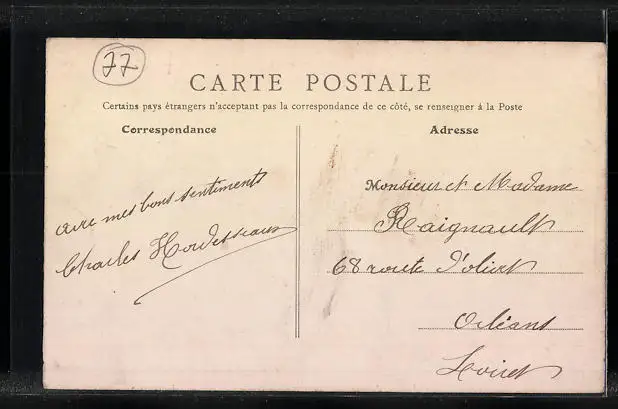 77
CARTE POSTALE
Certains pays étrangers n'acceptant pas la correspondance de ce côté, se renseigner à la Poste
Correspondance
Adresse
avec mes bons sentiments
Charles
Monsieur et Madame
Raignault
68 route d'olivet
Orléans
Loiret